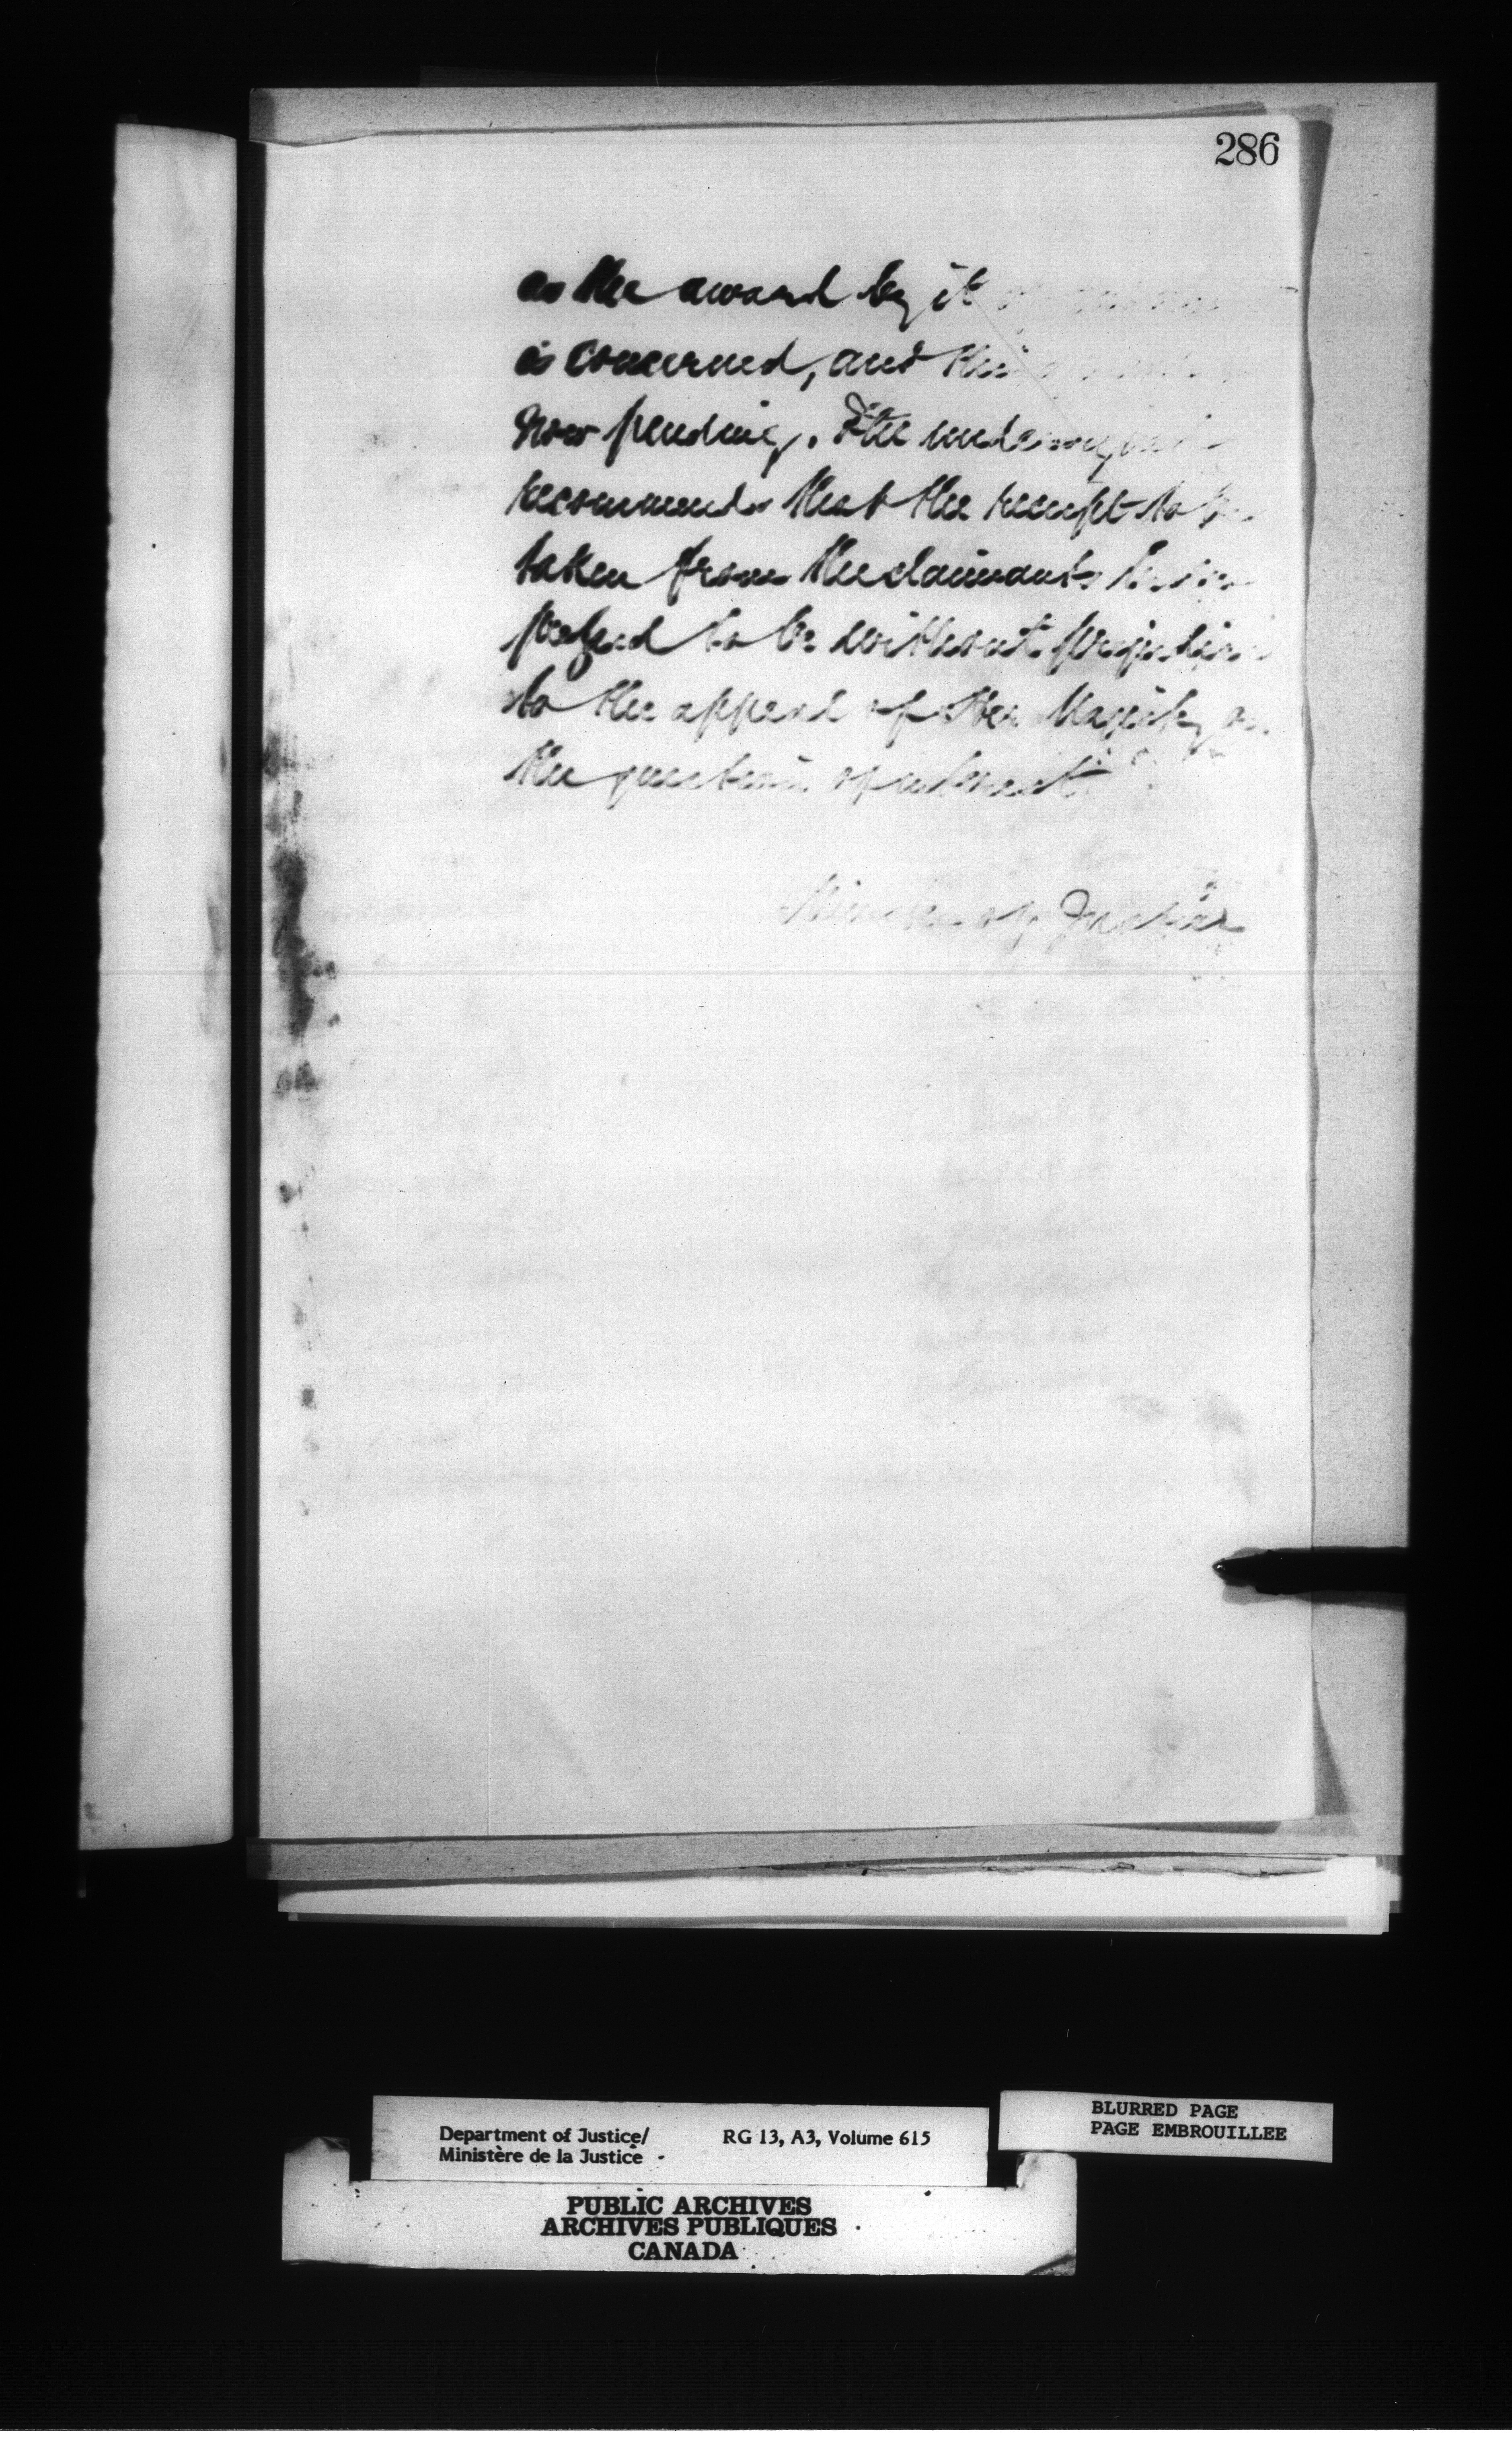 286
as the award by it
is concerned, and this
now pending. The undersigned
recommends that the receipt to be
taken from the claimants
to be without prejudice
to the appeal of Her Majesty on
the question of interest
Minister of Justice
Department of Justice/ RG 13, A3, Volume 615
Ministère de la Justice
BLURRED PAGE
PAGE EMBROUILLEE
PUBLIC ARCHIVES
ARCHIVES PUBLIQUES
CANADA